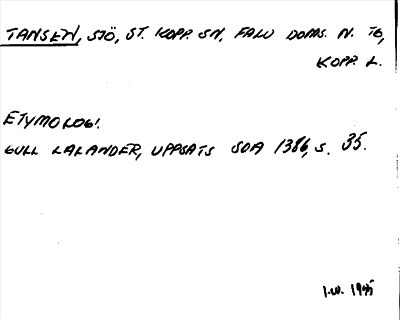 TANSEN, SJÖ, ST. KOPP. SN, FALU DOMS. N. TG,
KOPP. L.
ETYMOLOGI.
GULL LALANDER, UPPSATS SOA 1386, S. 35.
I.W. 1975